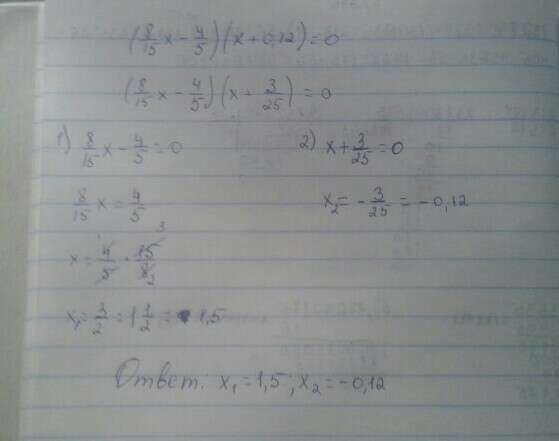 (8/15 x - 4/5)(x + 0,12) = 0
(8/15 x - 4/5)(x + 3/25) = 0
1) 8/15 x - 4/5 = 0
8/15 x = 4/5
x = 4/5 · 15/8
x₁ = 3/2 = 1 1/2 = 1,5
2) x + 3/25 = 0
x₂ = - 3/25 = -0,12
Ответ: x₁ = 1,5; x₂ = -0,12